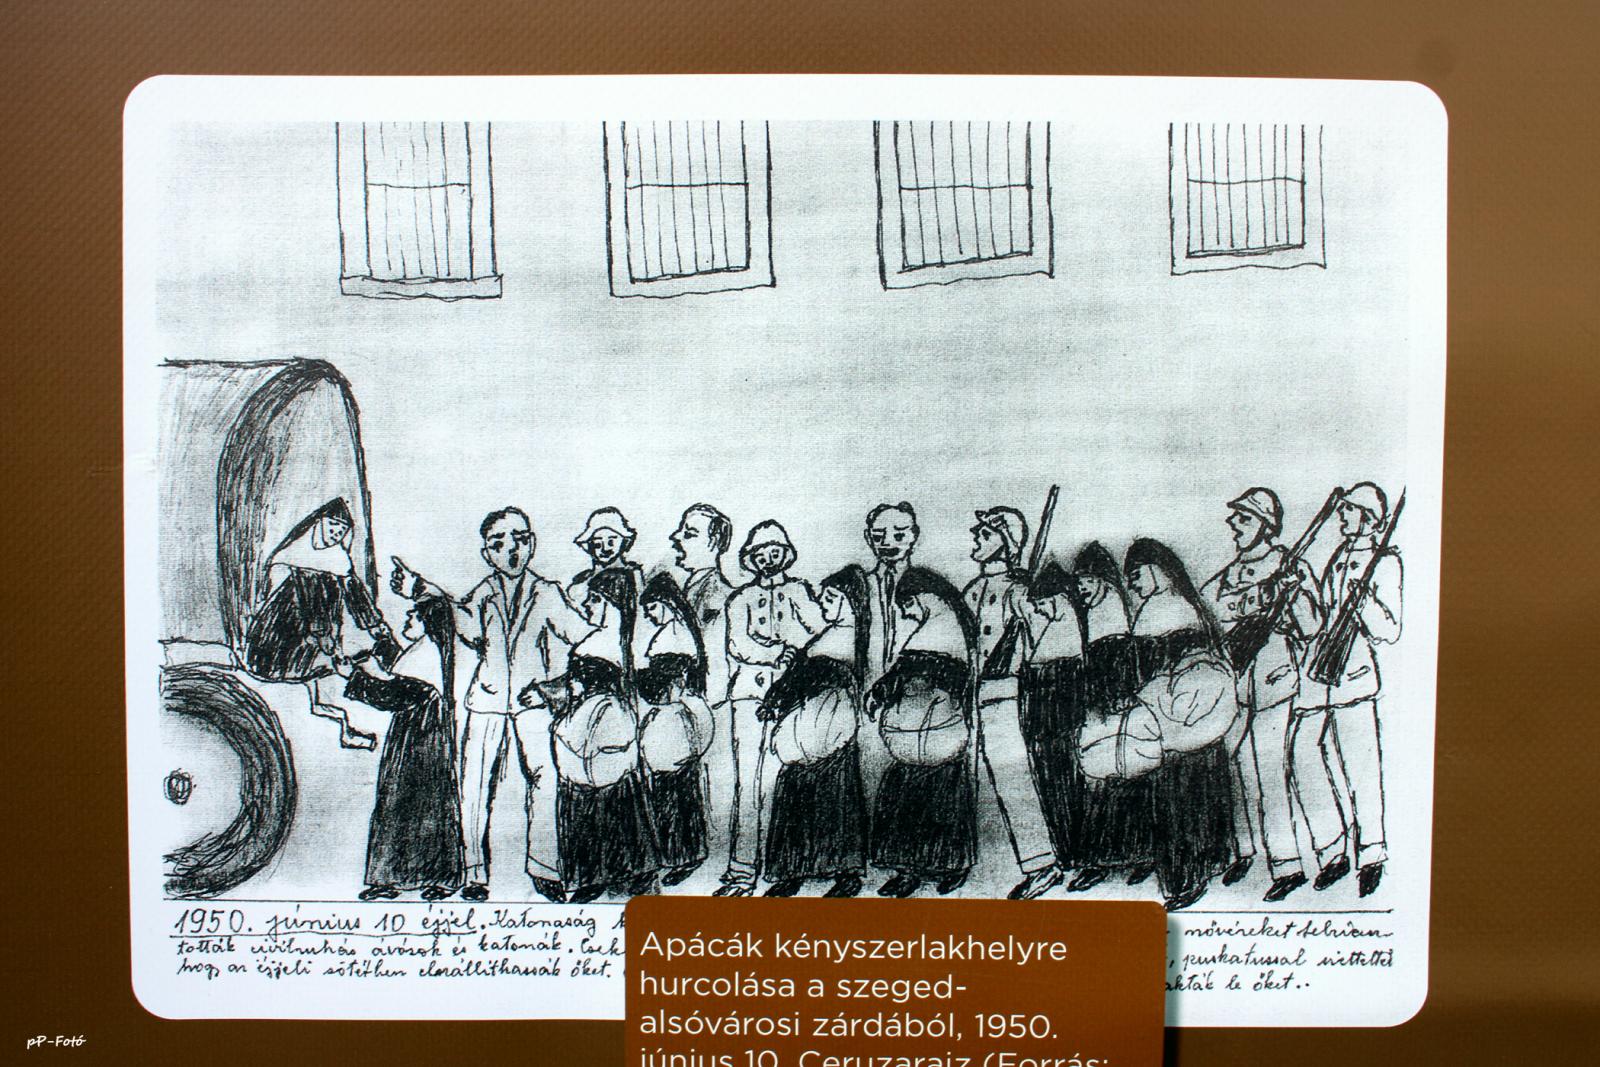 1950. június 10 éjjel. Katonaság
nővéreket felriasz-
tották civilruhás ávósok és katonák. Csek
, puskatussal siettettél
hogy az éjjeli sötétben elszállíthassák őket.
akták le őket..
Apácák kényszerlakhelyre
hurcolása a szeged-
alsóvárosi zárdából, 1950.
június 10. Ceruzarajz (Forrás:
pP-Fotó